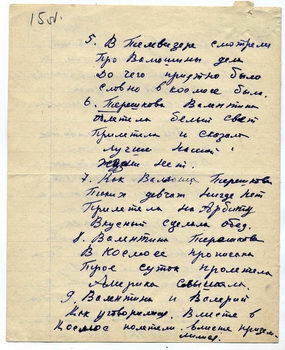 15 об.
5. В Телевизоре смотрели
Про Валюшины дела
До чего приятно было
словно в космосе был.
6. Терешкова Валентина
облетела белый свет
Прилетела и сказала
лучше нашей
жизни нет.
7. Как Валюша Терешкова
Таких девчат нигде нет
Прилетела на Арбиту
Вкусный сделала обед.
8. Валентина Терашкова
В Космосе прописана
Трое суток пролетала
Америка
9. Валентина и Валерий
Как уговорились Вместе в
Космос полетели. вместе призем-
лились.